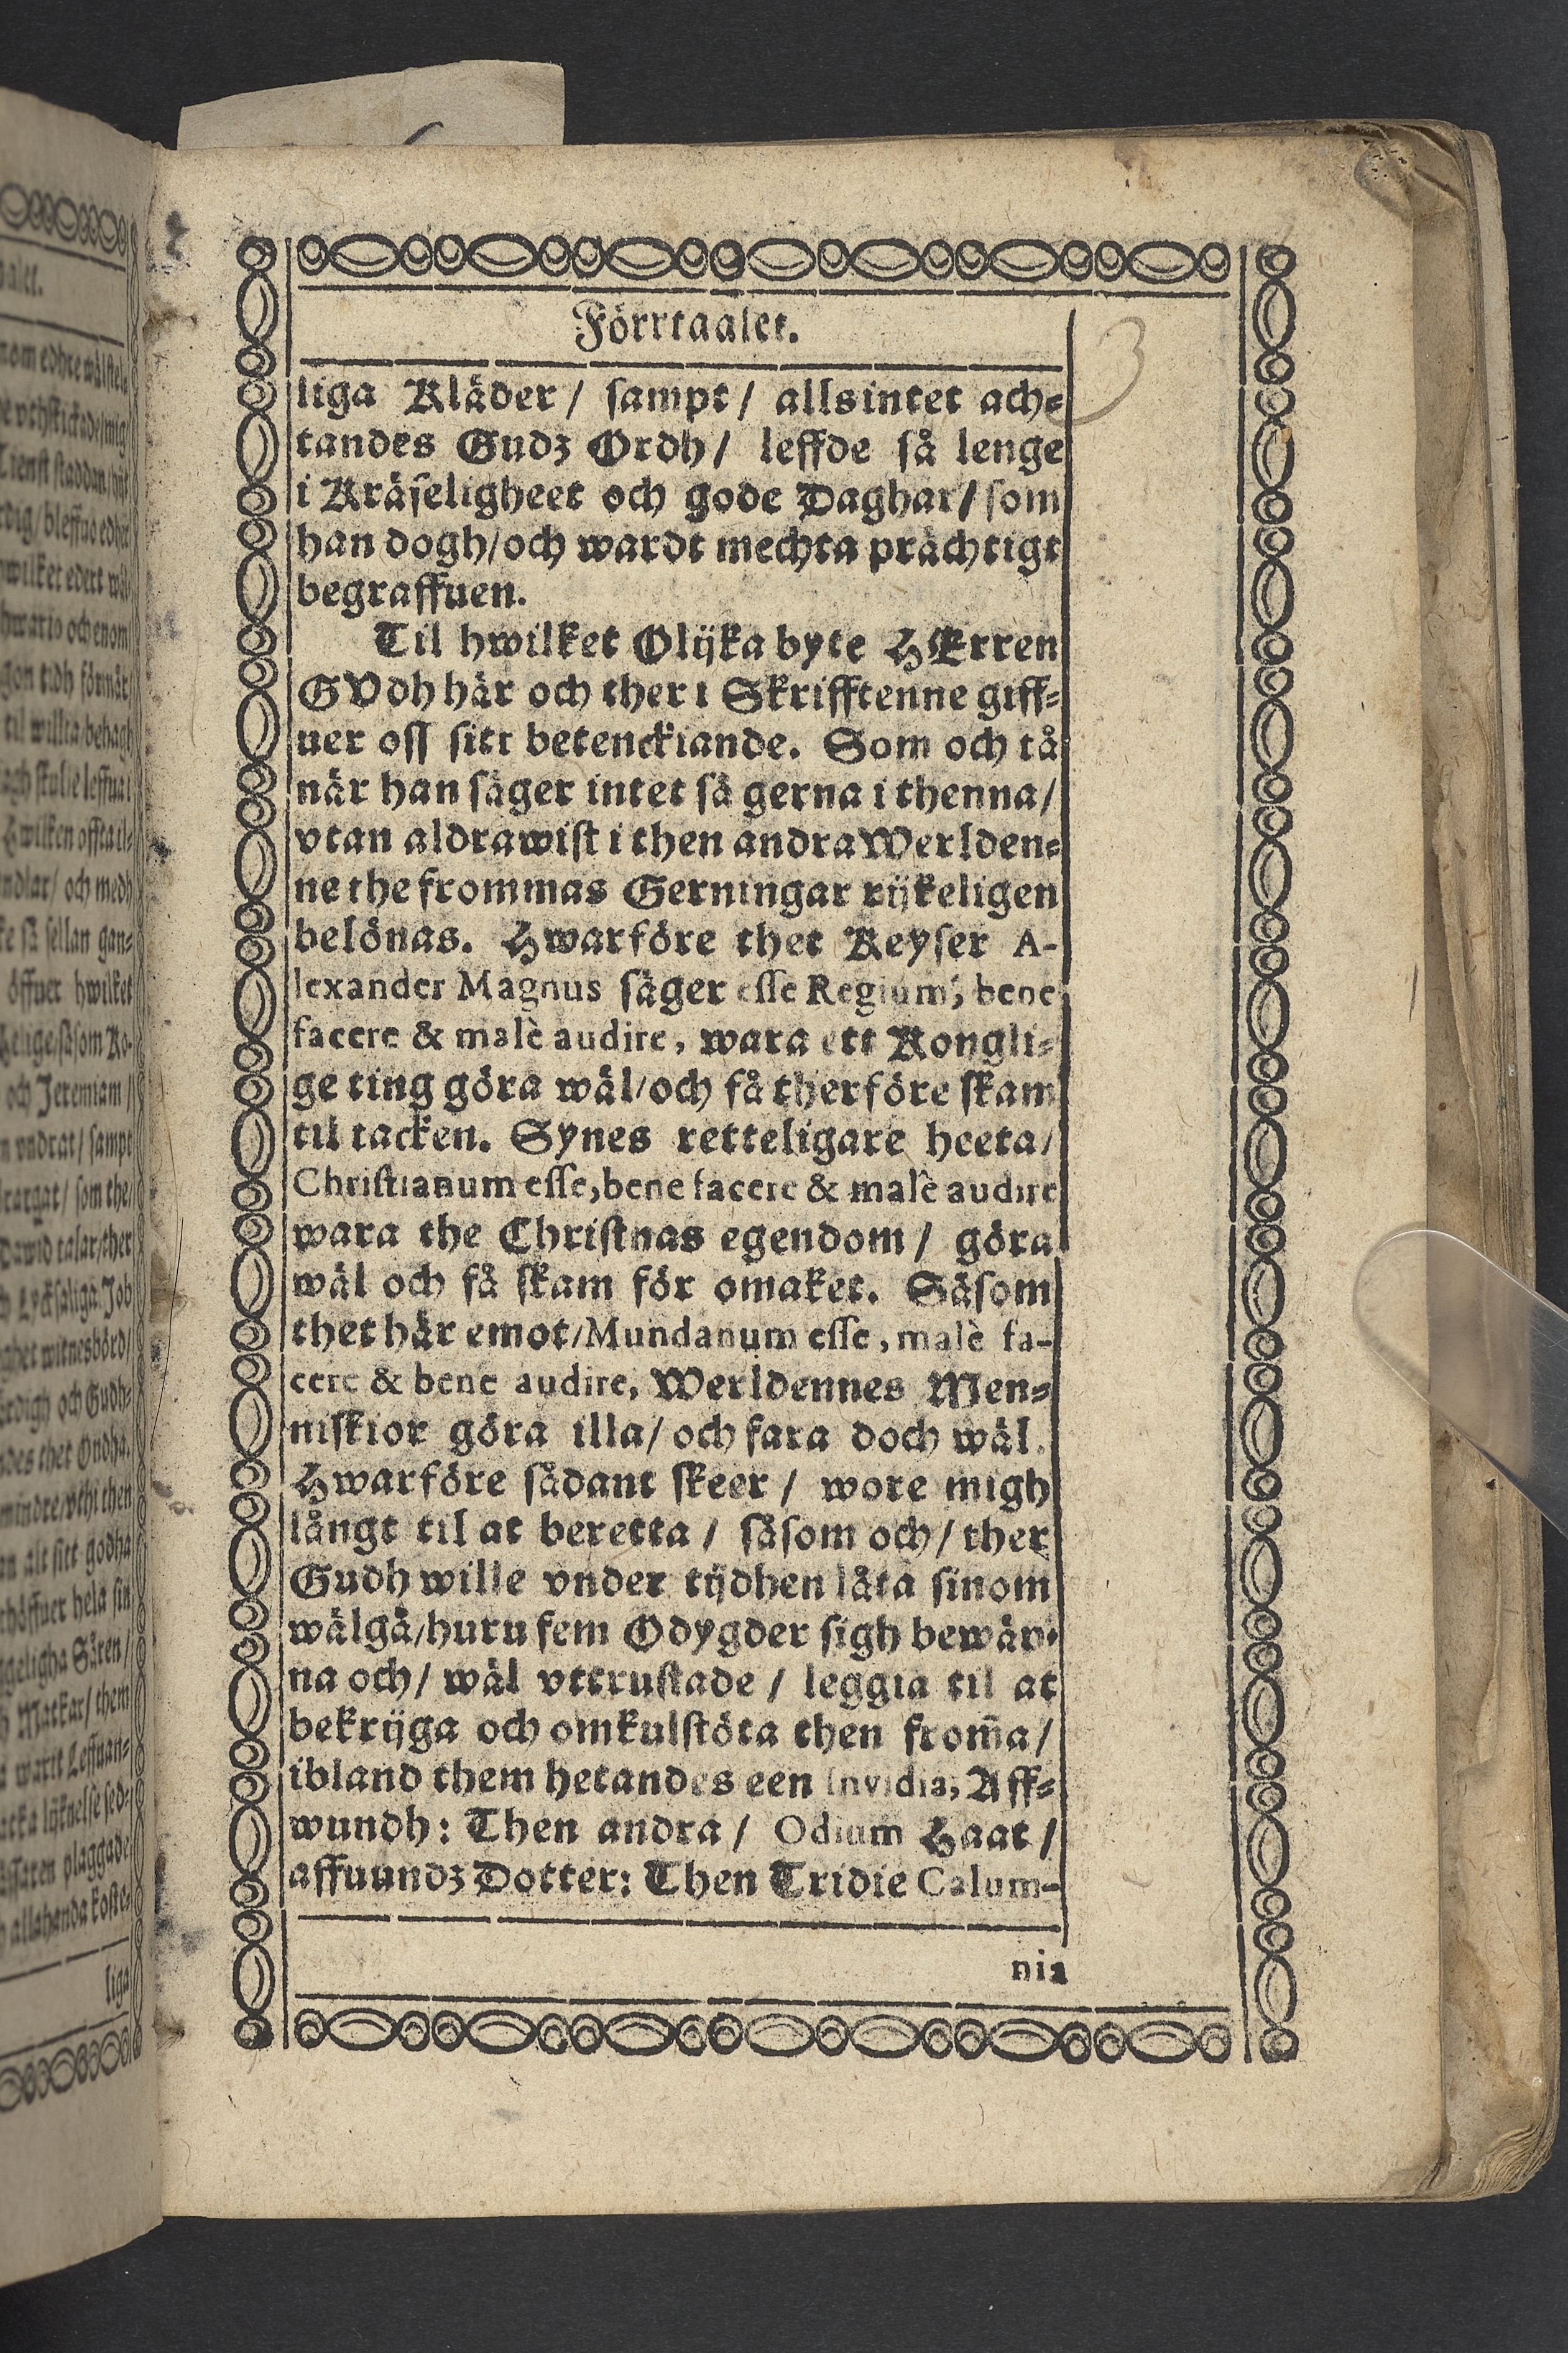 Förrtaalet.
3
liga Kläder / sampt / allsintet ach-
tandes Gudz Ordh / leffde så lenge
i Kräseligheet och gode Daghar / som
han dogh / och wardt mechta prächtigt
begraffuen.
Til hwilket Olijka byte HErren
GVdh här och ther i Skrifftenne giff-
uer oss sitt betenckiande. Som och tå
när han säger intet så gerna i thenna /
vtan aldrawist i then andra Werlden-
ne the frommas Gerningar rijkeligen
belönas. Hwarföre thet Keyser A-
lexander Magnus säger esse Regium, bene
facere & malè audire, wara ett Kongli-
ge ting göra wäl / och få therföre skam
til tacken. Synes retteligare heeta /
Christianum esse, bene facere & malè audire
wara the Christnas egendom / göra
wäl och få skam för omaket. Såsom
thet här emot / Mundanum esse, malè fa-
cere & bene audire, Werldennes Men-
niskior göra illa / och fara doch wäl.
Hwarföre sådant skeer / wore migh
långt til at beretta / såsom och / ther
Gudh wille vnder tijdhen låta sinom
wälgå / huru fem Odygder sigh bewäp-
na och / wäl vttrustade / leggia til at
bekrijga och omkulstöta then from̃a /
ibland them hetandes een Invidia, Aff-
wundh: Then andra / Odium Haat /
affuundz Dotter: Then Tridie Calum-
nia